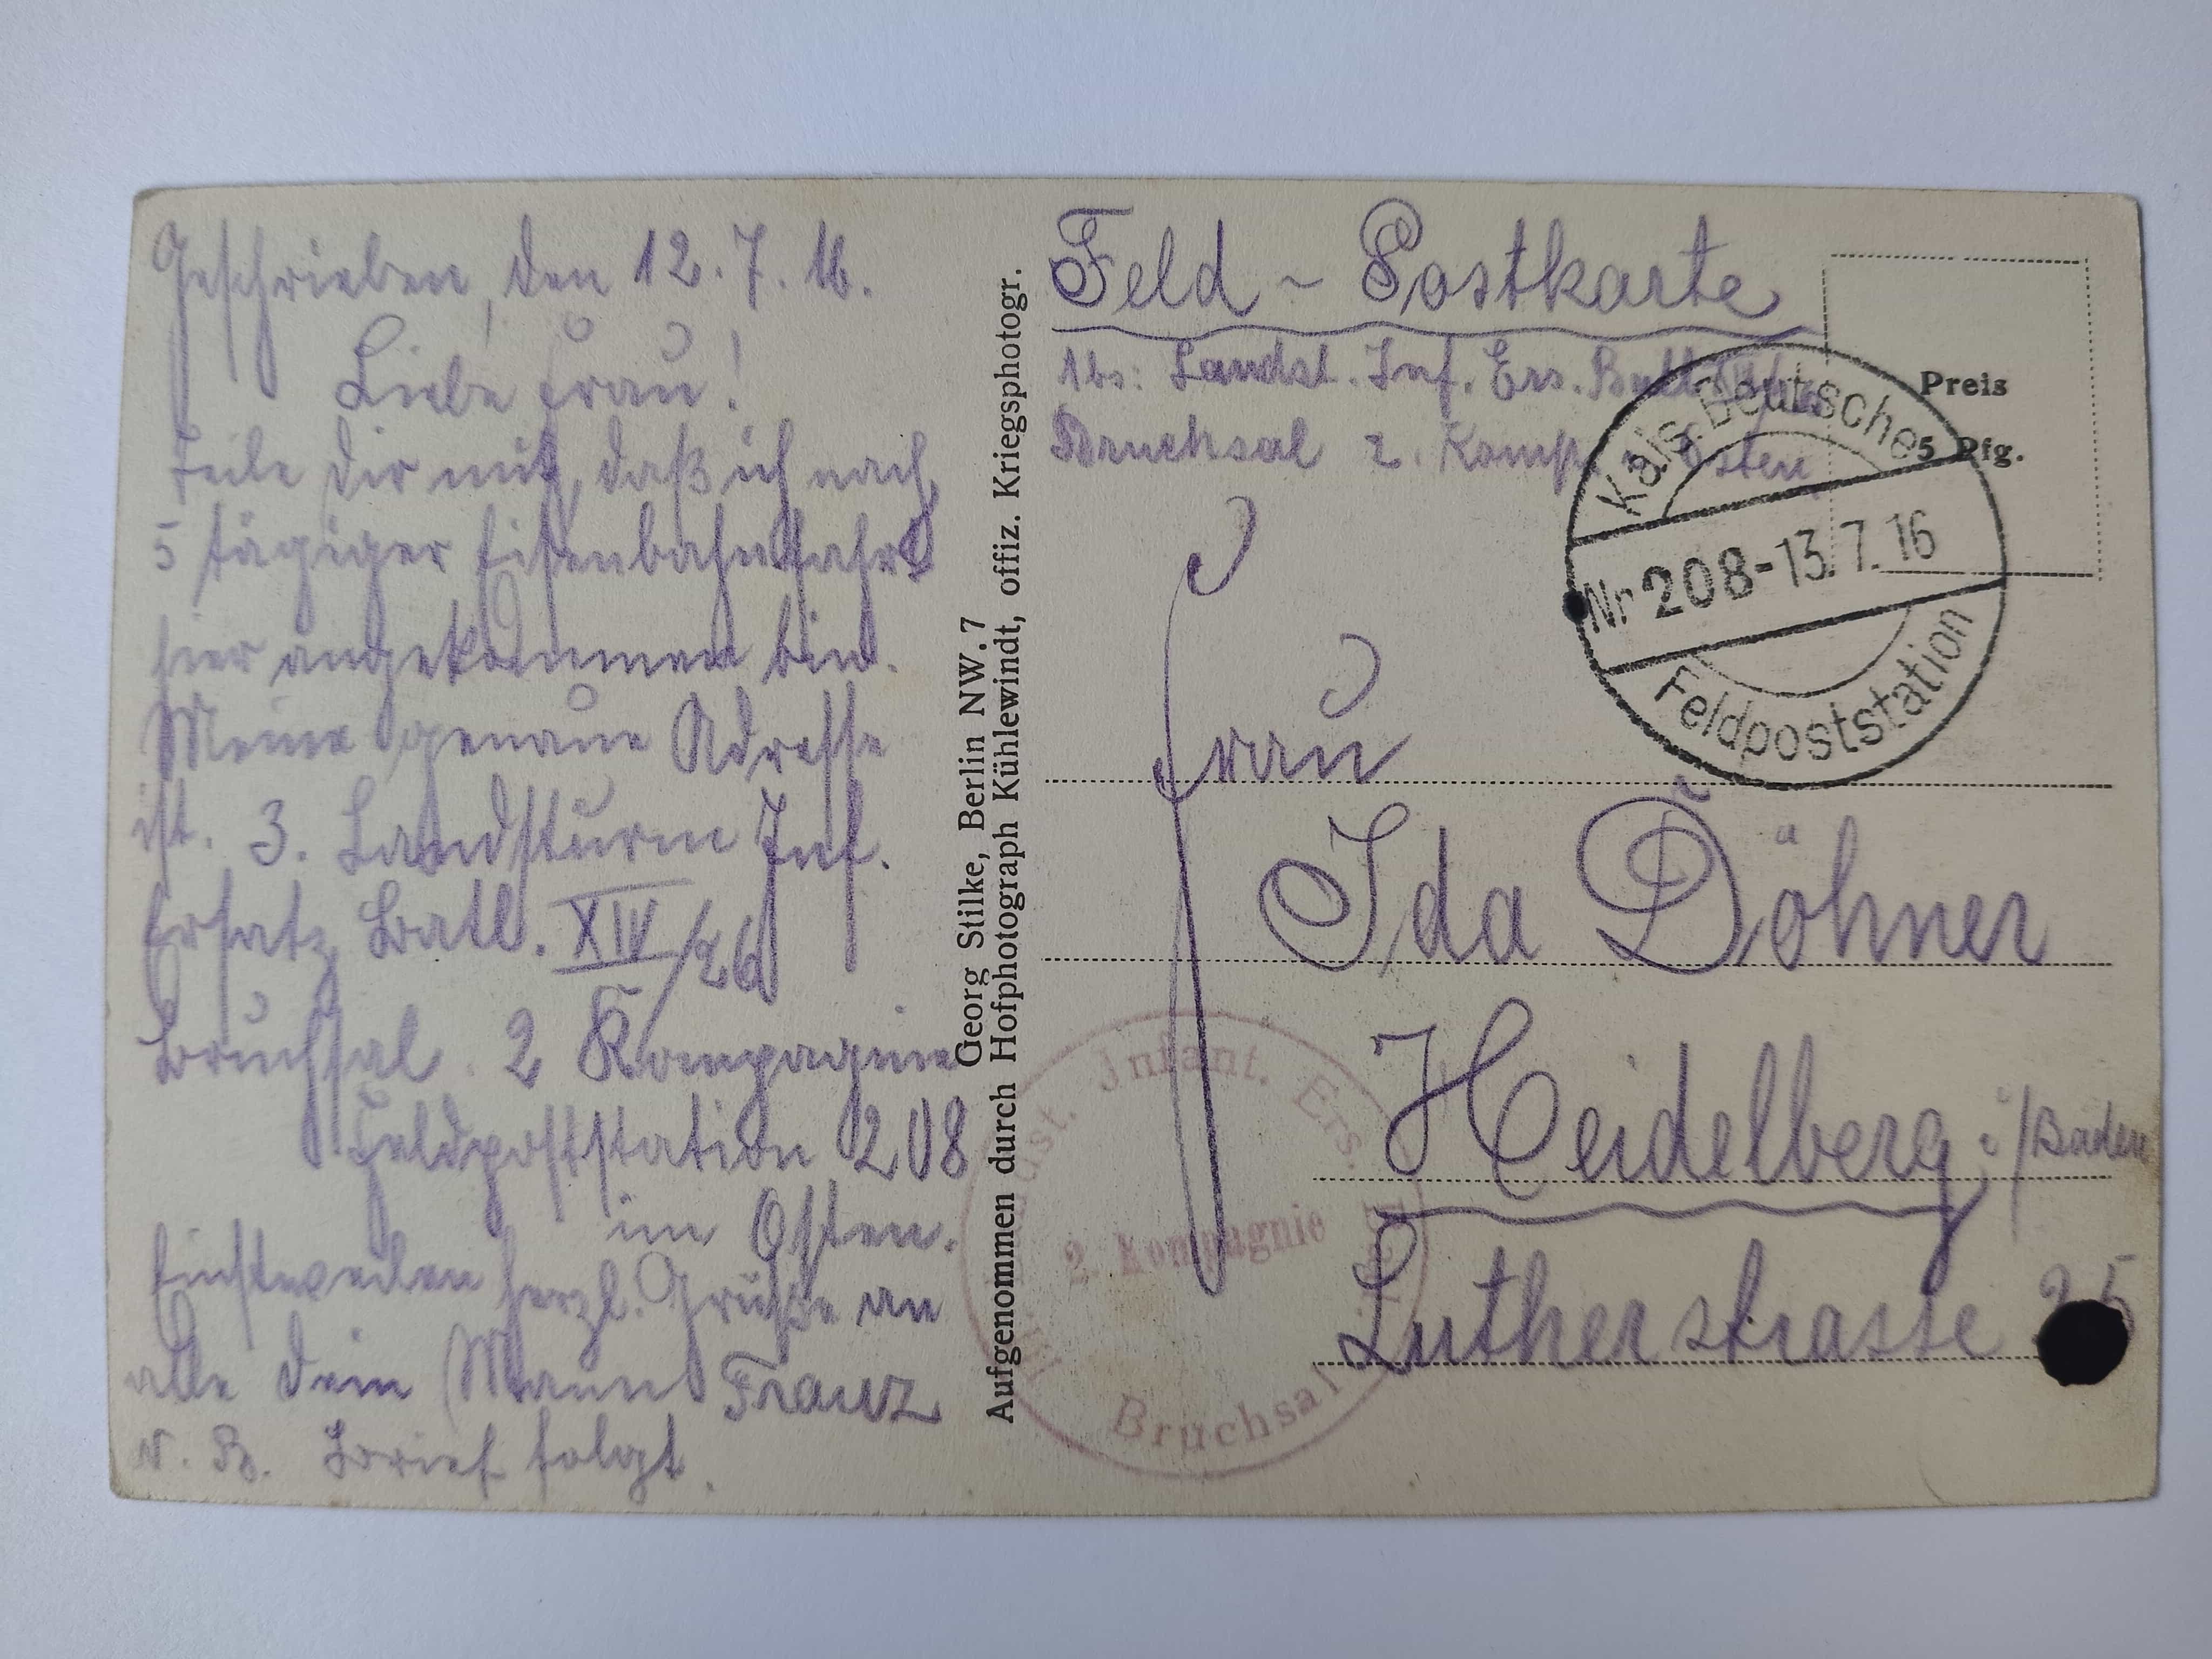 Geschrieben, den 12.7.16.
Liebe Frau!
Teile Dir mit, daß ich nach
5 tägiger Eisenbahnfahrt
hier angekommen bin.
Meine genaue Adresse
ist. 3. Landsturm Inf.
Ersatz Batl. XIV/26
Bruchsal. 2 Kompagnie
Feldpoststation 208
im Osten.
Einstweilen herzl. Grüße an
alle Dein Mann Franz
N. B. Brief folgt.
Georg Stilke, Berlin NW. 7
Aufgenommen durch Hofphotograph Kühlewindt, offiz. Kriegsphotogr.
Feld - Postkarte
Abs: Landst. Inf. Ers. Batl.
Bruchsal 2. Komp. Osten
Preis
5 Pfg.
Kais. Deutsche
Nr 208 - 13.7.16
Feldpoststation
Frau
Ida Döhner
Heidelberg i/Baden
Lutherstrasse 25
Infant. Ers.
2. Kompagnie
Bruchsal